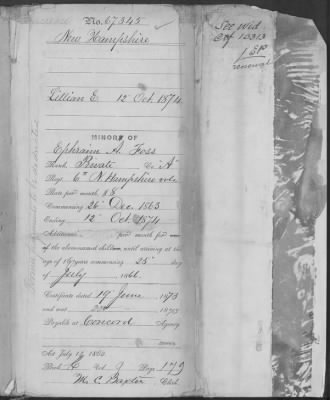 No. 67345
New Hampshire
See Wid.
Ctf 13313
Lillian E. 12 Oct. 1874
MINORS OF
Ephraim A. Foss
Rank, Private Co "A"
Reg. 6" N. Hampshire vols
Rate per month, $8
Commencing 26" Dec. 1863
Ending 12" Oct. 1874
Additional per month for
of the abovenamed children, until arriving at the
age of 16 years commencing 25" day
of July 1866.
Certificate dated 19" June 1873
and sent 187
Payable at Concord Agency
Act July 14 1862.
Book Vol. Page 179
M. C. Baxter Clerk